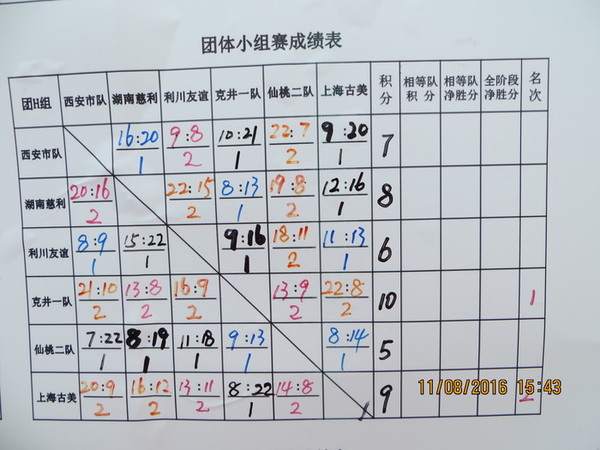 团体小组赛成绩表
团H组 西安市队 湖南慈利 利川友谊 克井一队 仙桃二队 上海古美 积分 相等队积分 相等队净胜分 全阶段净胜分 名次
西安市队 16:20 9:8 10:21 22:7 9:20 7
1 2 1 2 1
湖南慈利 20:16 22:15 8:13 19:8 12:16 8
2 2 1 2 1
利川友谊 8:9 15:22 9:16 18:11 11:13 6
1 1 1 2 1
克井一队 21:10 13:8 16:9 13:9 22:8 10 1
2 2 2 2 2
仙桃二队 7:22 8:19 11:18 9:13 8:14 5
1 1 1 1 1
上海古美 20:9 16:12 13:11 8:22 14:8 9 2
2 2 2 1 2
11/08/2016 15:43